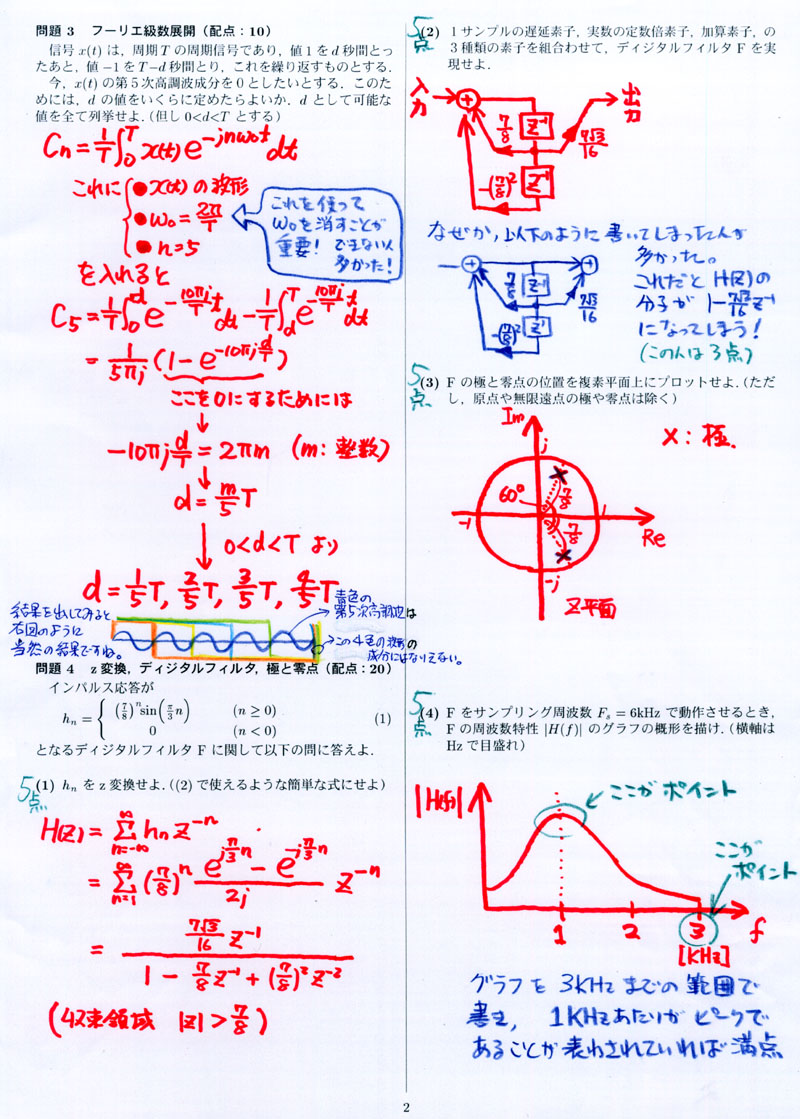 問題 3　フーリエ級数展開（配点：10）
信号 x(t) は，周期 T の周期信号であり，値 1 を d 秒間とっ
たあと，値 −1 を T−d 秒間とり，これを繰り返すものとする．
今，x(t) の第 5 次高調波成分を 0 としたいとする．このた
めには，d の値をいくらに定めたらよいか．d として可能な
値を全て列挙せよ．(但し 0<d<T とする)
Cn = 1/T ∫₀ᵀ x(t) e^{-jnω₀t} dt
これに
● x(t) の波形
● ω₀ = 2π/T
● n=5
これを使って
ω₀を消すことが
重要！できない人
多かった！
を入れると
C₅ = 1/T ∫₀ᵈ e^{-10πj/T t} dt − 1/T ∫_dᵀ e^{-10πj/T t} dt
= 1/5πj (1 − e^{-10πj d/T})
ここを0にするためには
−10πj d/T = 2πm (m: 整数)
d = m/5 T
0<d<T より
d = 1/5 T, 2/5 T, 3/5 T, 4/5 T
結果を出してみると
右図のように
当然の結果ですね。
青色の
第5次高調波は
この4色の波形の
成分にはなりえない。
問題 4　z 変換，ディジタルフィルタ，極と零点（配点：20）
インパルス応答が
hn = { (7/8)ⁿ sin(π/3 n) (n ≥ 0)
0 (n < 0) (1)
となるディジタルフィルタ F に関して以下の問に答えよ．
5点
(1) hn を z 変換せよ．((2) で使えるような簡単な式にせよ)
H(z) = Σ_{n=-∞}^{∞} hn z⁻ⁿ
= Σ_{n=1}^{∞} (7/8)ⁿ (e^{jπ/3 n} − e^{-jπ/3 n}) / 2j z⁻ⁿ
= (7√3/16 z⁻¹) / (1 − 7/8 z⁻¹ + (7/8)² z⁻²)
(収束領域 |z| > 7/8)
5点
(2) 1 サンプルの遅延素子，実数の定数倍素子，加算素子，の
3 種類の素子を組合わせて，ディジタルフィルタ F を実
現せよ．
入力
+
7/8
Z⁻¹
出力
7√3/16
−(7/8)²
Z⁻¹
なぜか，以下のように書いてしまった人が
多かった。
+
7/8
Z⁻¹
+
7√3/16
−(7/8)²
Z⁻¹
これだと H(z) の
分子が 1−7√3/16 z⁻¹
になってしまう！
(この人は3点)
5点
(3) F の極と零点の位置を複素平面上にプロットせよ．(ただ
し，原点や無限遠点の極や零点は除く)
Im
×：極．
j
60°
7/8
-1
1
7/8
Re
-j
Z平面
5点
(4) F をサンプリング周波数 Fs = 6kHz で動作させるとき，
F の周波数特性 |H(f)| のグラフの概形を描け．(横軸は
Hz で目盛れ)
|H(f)|
ここがポイント
ここが
ポイント
1
2
3
f
[KHz]
グラフを 3KHz までの範囲で
書き， 1KHzあたりがピークで
あることが表わされていれば満点
2